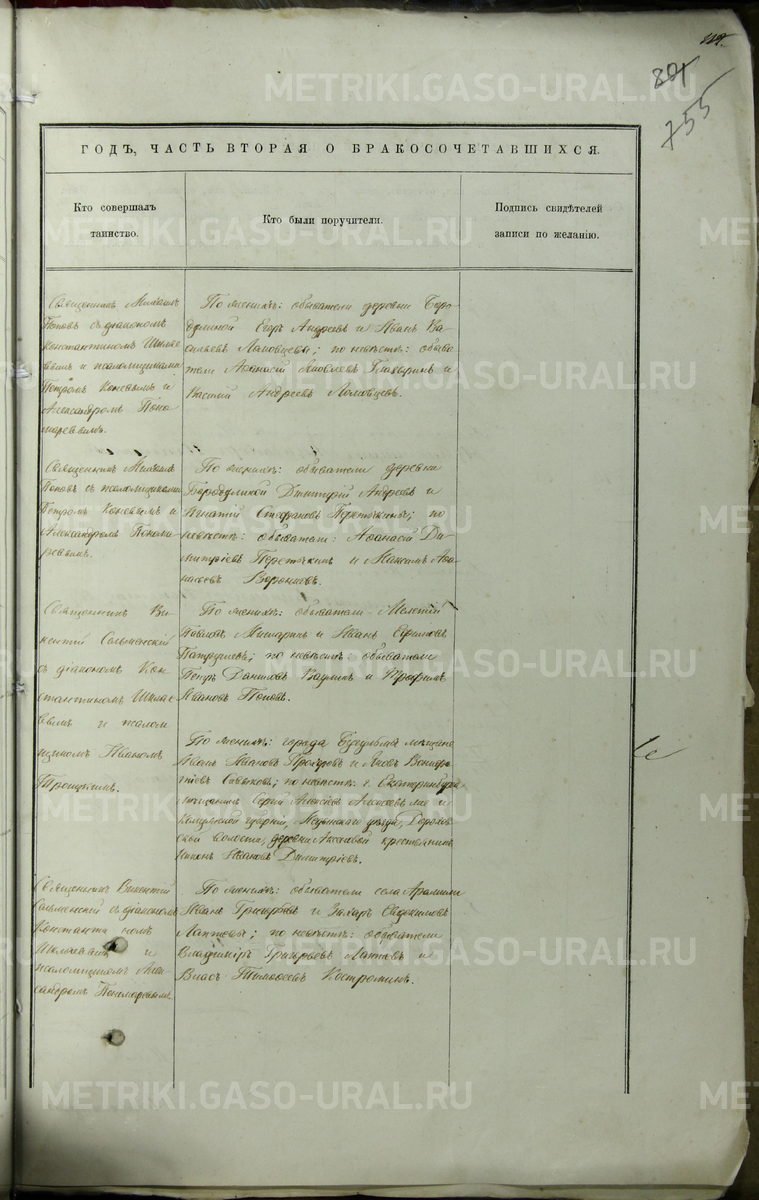 755
ГОДЪ, ЧАСТЬ ВТОРАЯ О БРАКОСОЧЕТАВШИХСЯ.
Кто совершалъ
таинство.
Кто были поручители.
Подпись свидѣтелей
записи по желанію.
Священникъ Михаилъ
Поповъ съ діакономъ
Константиномъ
и псаломщиками
Петромъ Коневымъ и
Александромъ Поно
маревымъ.
По женихѣ: обыватели деревни Боро
дулиной Егоръ Андреевъ и Иванъ Ва
сильевъ; по невѣстѣ: обыва
тели Аѳанасій Яковлевъ и
Василій Андреевъ
Священникъ Михаилъ
Поповъ съ псаломщиками
Петромъ Коневымъ и
Александромъ Понома
ревымъ.
По женихѣ: обыватели деревни
Бородулиной Димитрій Андреевъ и
Игнатій Стефановъ Переточкины; по
невѣстѣ: обыватели: Аѳанасій Ди
митріевъ Переточкинъ и Максимъ Аѳа
насьевъ Воронцовъ.
Священникъ Ви
кентій Сельменскій
съ діакономъ Кон
стантиномъ
и псалом
щикомъ Иваномъ
Троицкимъ.
По женихѣ: обыватели Мелетій
Павловъ Мишаринъ и Иванъ Ефимовъ
Патрушевъ; по невѣстѣ: обыватели
Петръ Даниловъ Ваулинъ и Трофимъ
Ивановъ Поповъ.
По женихѣ: города мѣщане
Иванъ Ивановъ Прохоровъ и Яковъ Вонифа
тіевъ; по невѣстѣ: г. Екатеринбурга
мѣщанинъ Сергій Алексѣевъ и
губерніи, уѣзда,
ской волости, деревни крестьянинъ
Ивановъ Димитріевъ.
Священникъ Викентій
Сельменскій съ діакономъ
Константиномъ
и
псаломщикомъ Алек
сандромъ Пономаревымъ.
По женихѣ: обыватели села Арамили
Иванъ Григорьевъ и Захаръ Евдокимовъ
Лаптевы; по невѣстѣ: обыватели
Владиміръ Григорьевъ Лаптевъ и
Власъ Тимоѳеевъ Костроминъ.
METRIKI.GASO-URAL.RU